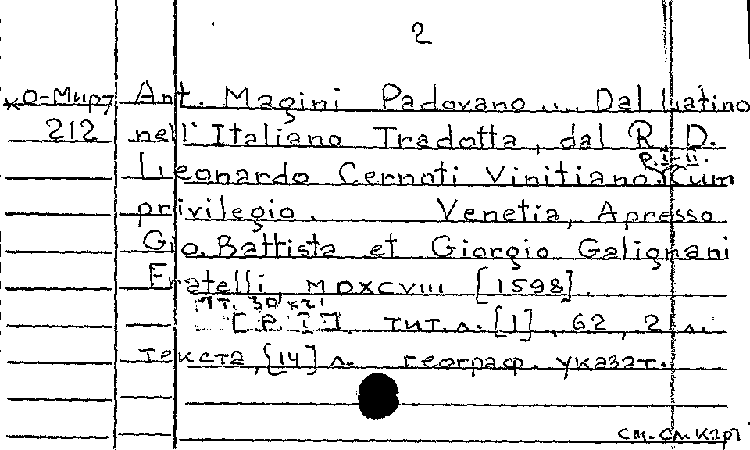 2
Ant. Magini Padovano ... Dal Latino
212 nell' Italiano Tradotta, dal R. D.
P. I-II.
Leonardo Cernoti Vinitiano. Cum
privilegio. Venetia, Apresso
Gio. Battista et Giorgio Galignani
Fratelli, MDXCVIII [1598].
[P I] тит. л. [1], 62, 2 л.
текста, [14] л. географ. указат.
см. сл. карт